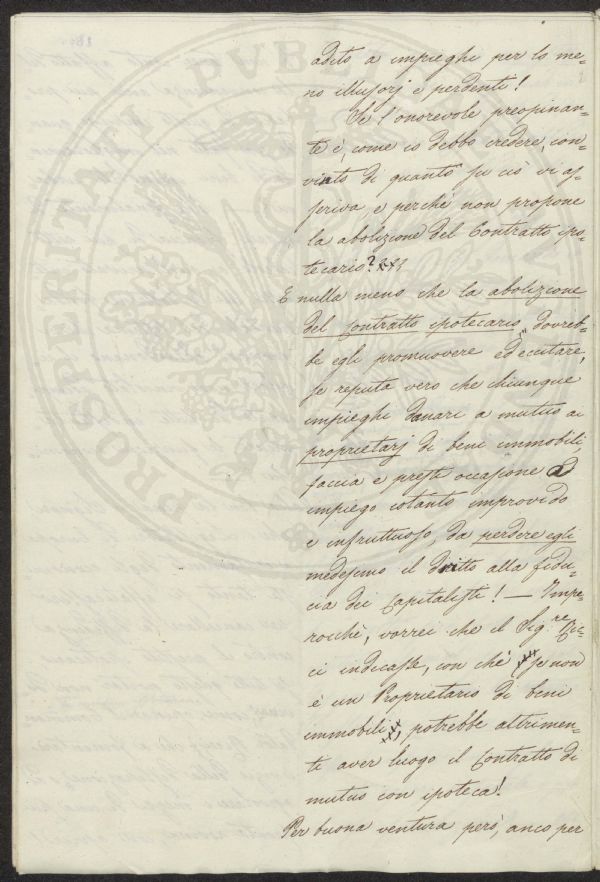 adito a impieghi per lo me-
no illusorj e perdenti!
Se l'onorevole preopinan-
te è, come io debbo credere con-
vinto di quanto su ciò vi as-
seriva, e perchè non propone
la abolizione del Contratto ipo-
tecario?
E nulla meno che la abolizione
del Contratto ipotecario, dovreb-
be egli promuovere ed eccitare,
se reputa vero che chiunque
impieghi danari a mutuo ai
proprietarj di beni immobili,
faccia e presti occasione ad
impiego cotanto improvido
e infruttuoso, da perdere egli
medesimo il dritto alla fidu-
cia dei Capitalisti! — Impe-
rocchè, vorrei che il Sig.re
ci indicasse, con chè (se non
è un Proprietario di beni
immobili) potrebbe altrimen-
ti aver luogo il Contratto di
mutuo con ipoteca!
Per buona ventura però, anco per
PROSPERITATI PUBLICAE